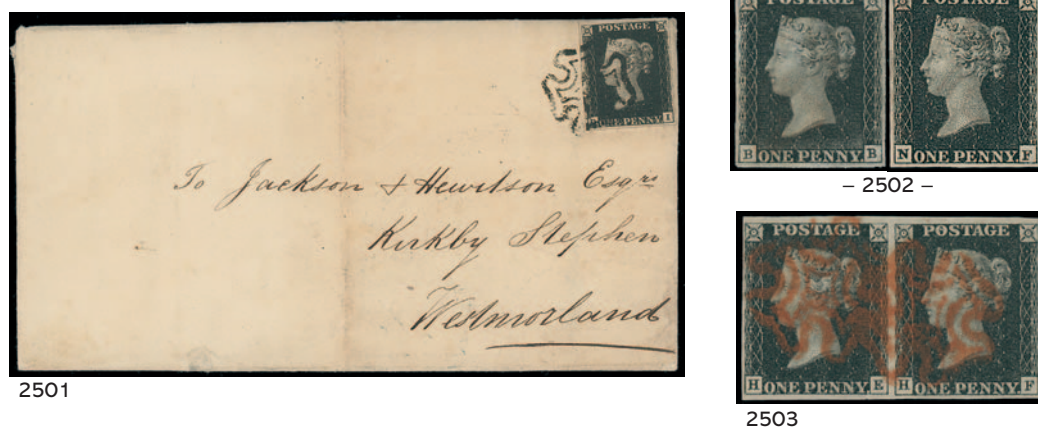 POSTAGE
ONE PENNY I
To Jackson & Hewitson Esqrs
Kirkby Stephen
Westmorland
2501
POSTAGE
B ONE PENNY B
POSTAGE
N ONE PENNY F
– 2502 –
POSTAGE
H ONE PENNY E
POSTAGE
H ONE PENNY F
2503